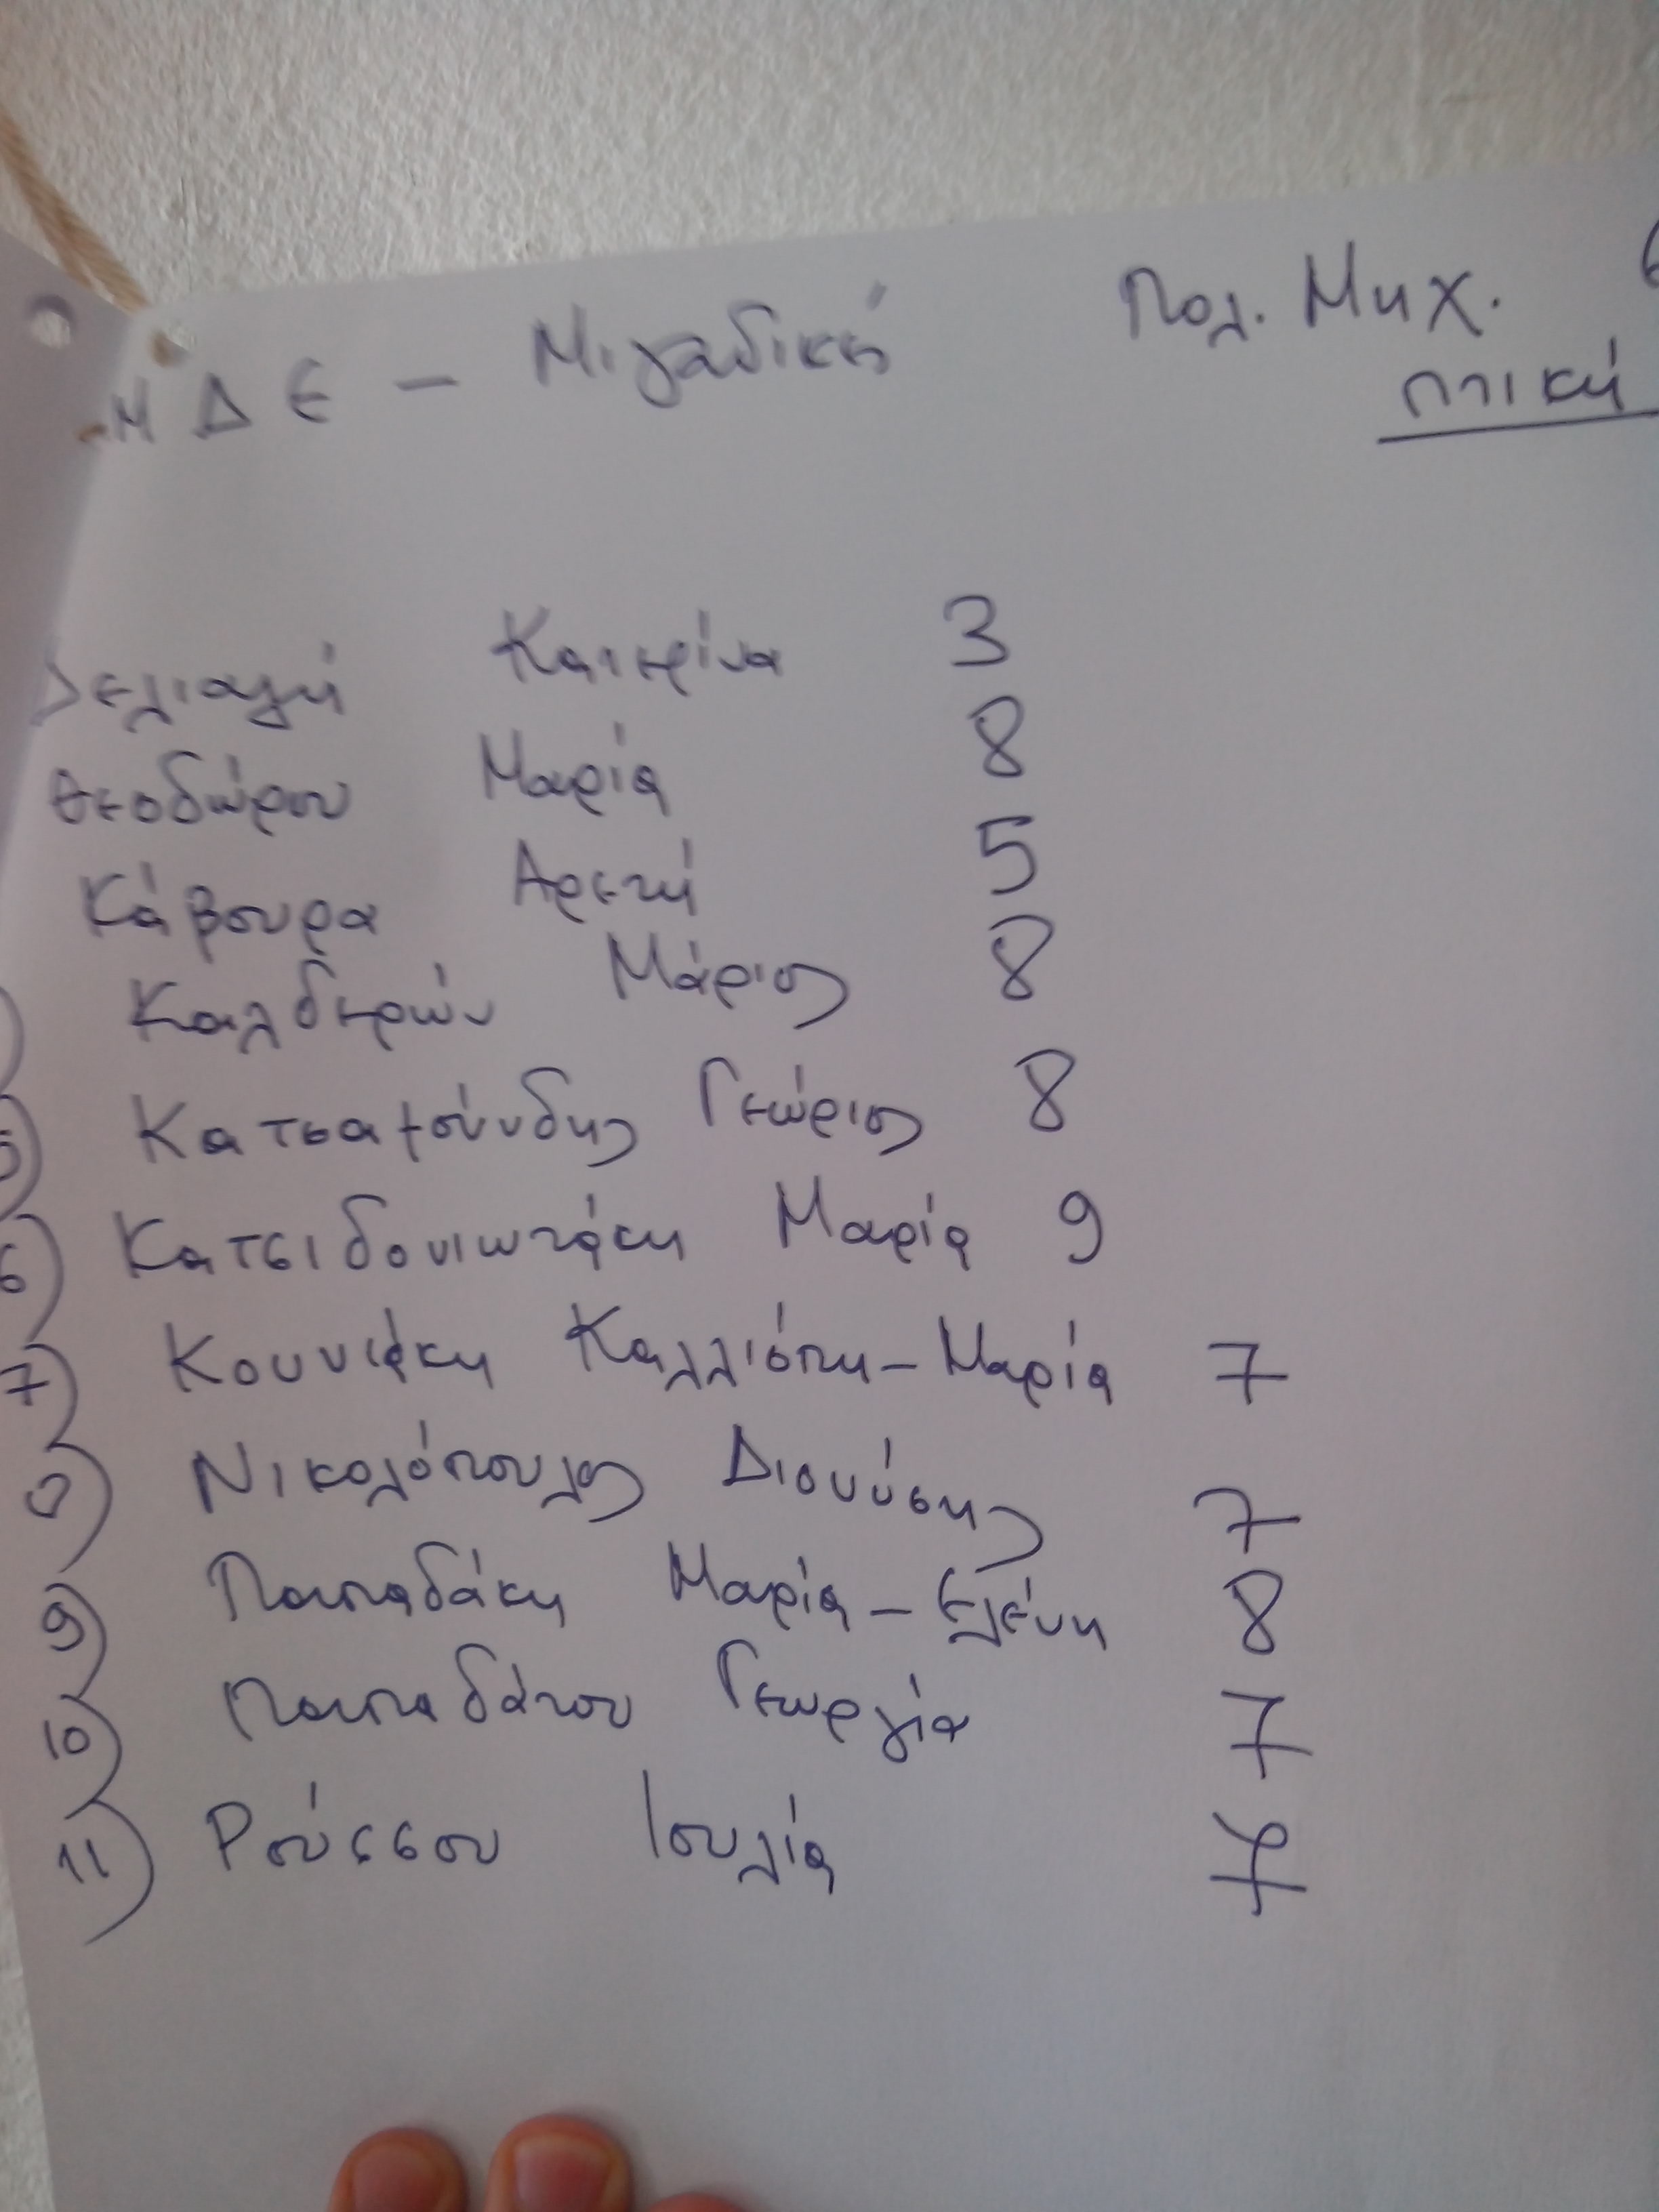 ΜΔΕ - Μιγαδική Πολ. Μηχ.
πτική
Δελιαλή Κατερίνα 3
Θεοδώρου Μαρία 8
Κάβουρα Αρετή 5
Καλδερών Μάριος 8
Γεώργιος 8
6) Κατσιδονιωτάκη Μαρία 9
7) Κουνιάκη Καλλιόπη-Μαρία 7
Νικολόπουλος Διονύσης 7
9) Παπαδάκη Μαρία-Ελένη 8
10) Παπαδάτου Γεωργία 7
11) Ρούσσου Ιουλία 7